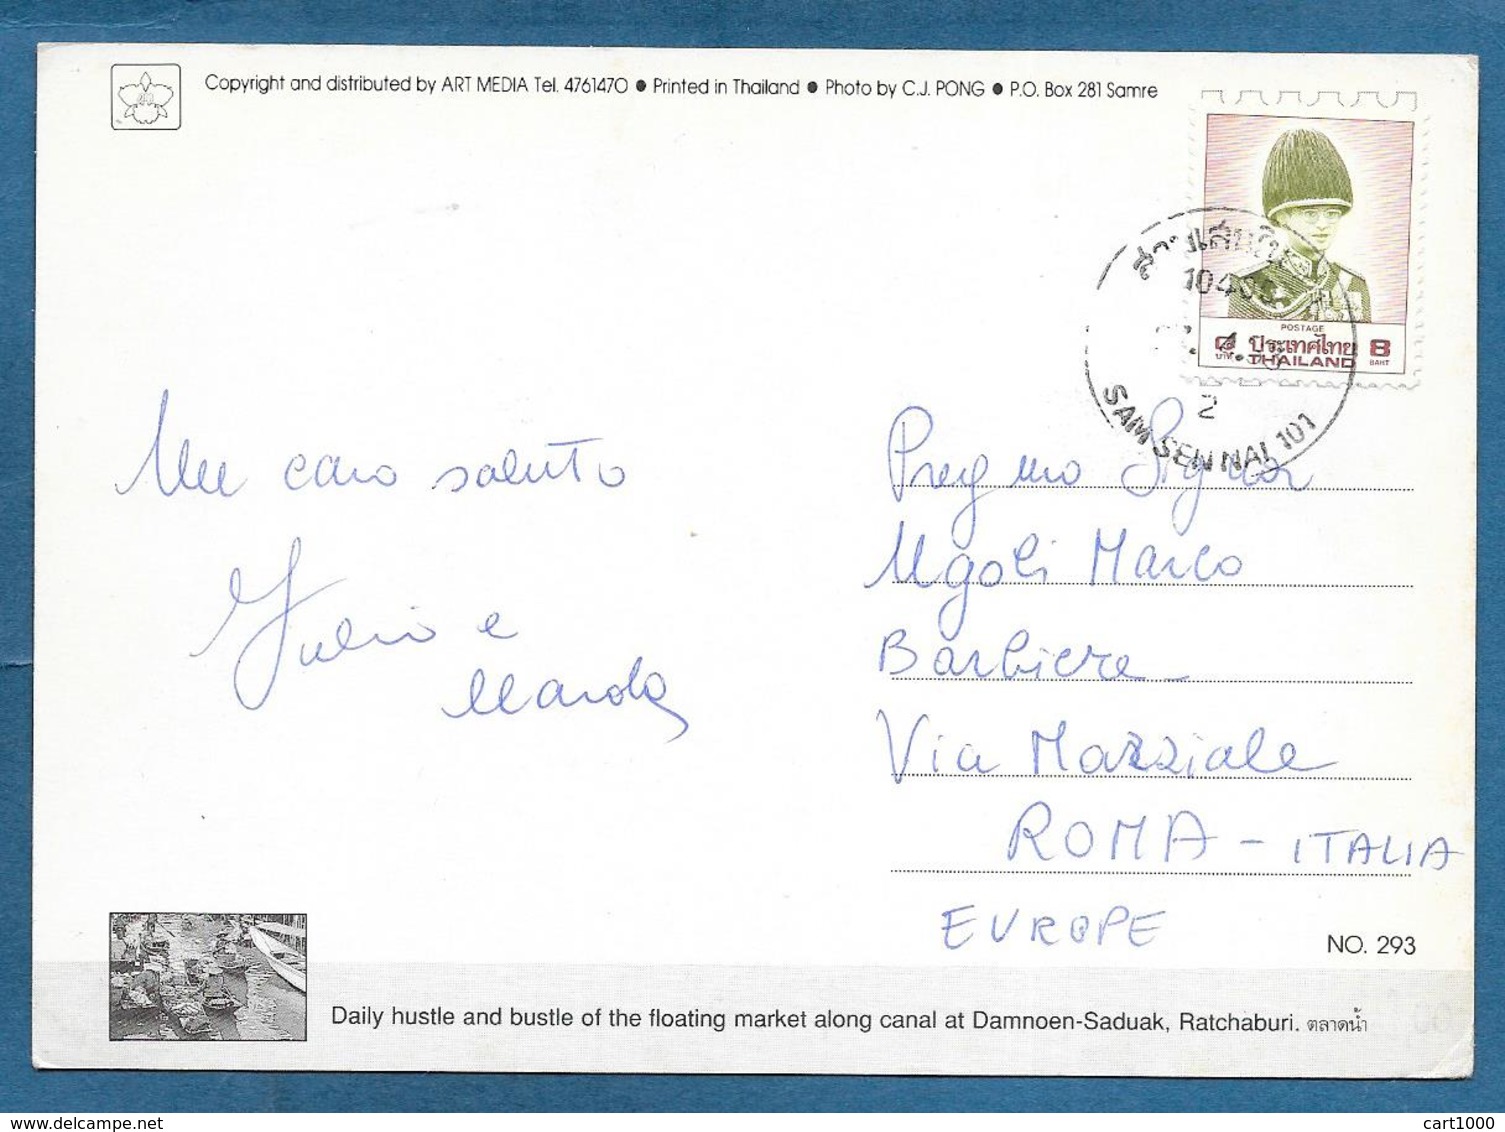 Copyright and distributed by ART MEDIA Tel. 4761470 ● Printed in Thailand ● Photo by C.J. PONG ● P.O. Box 281 Samre
POSTAGE
๘ ประเทศไทย 8
บาท THAILAND BAHT
10400
2
SAM SEN NAI 101
Un caro saluto
Julio e
Wanda
Preg.mo Signor
Ugoli Marco
Barbiere
Via Marziale
ROMA - ITALIA
EUROPE
NO. 293
Daily hustle and bustle of the floating market along canal at Damnoen-Saduak, Ratchaburi. ตลาดน้ำ
cart1000